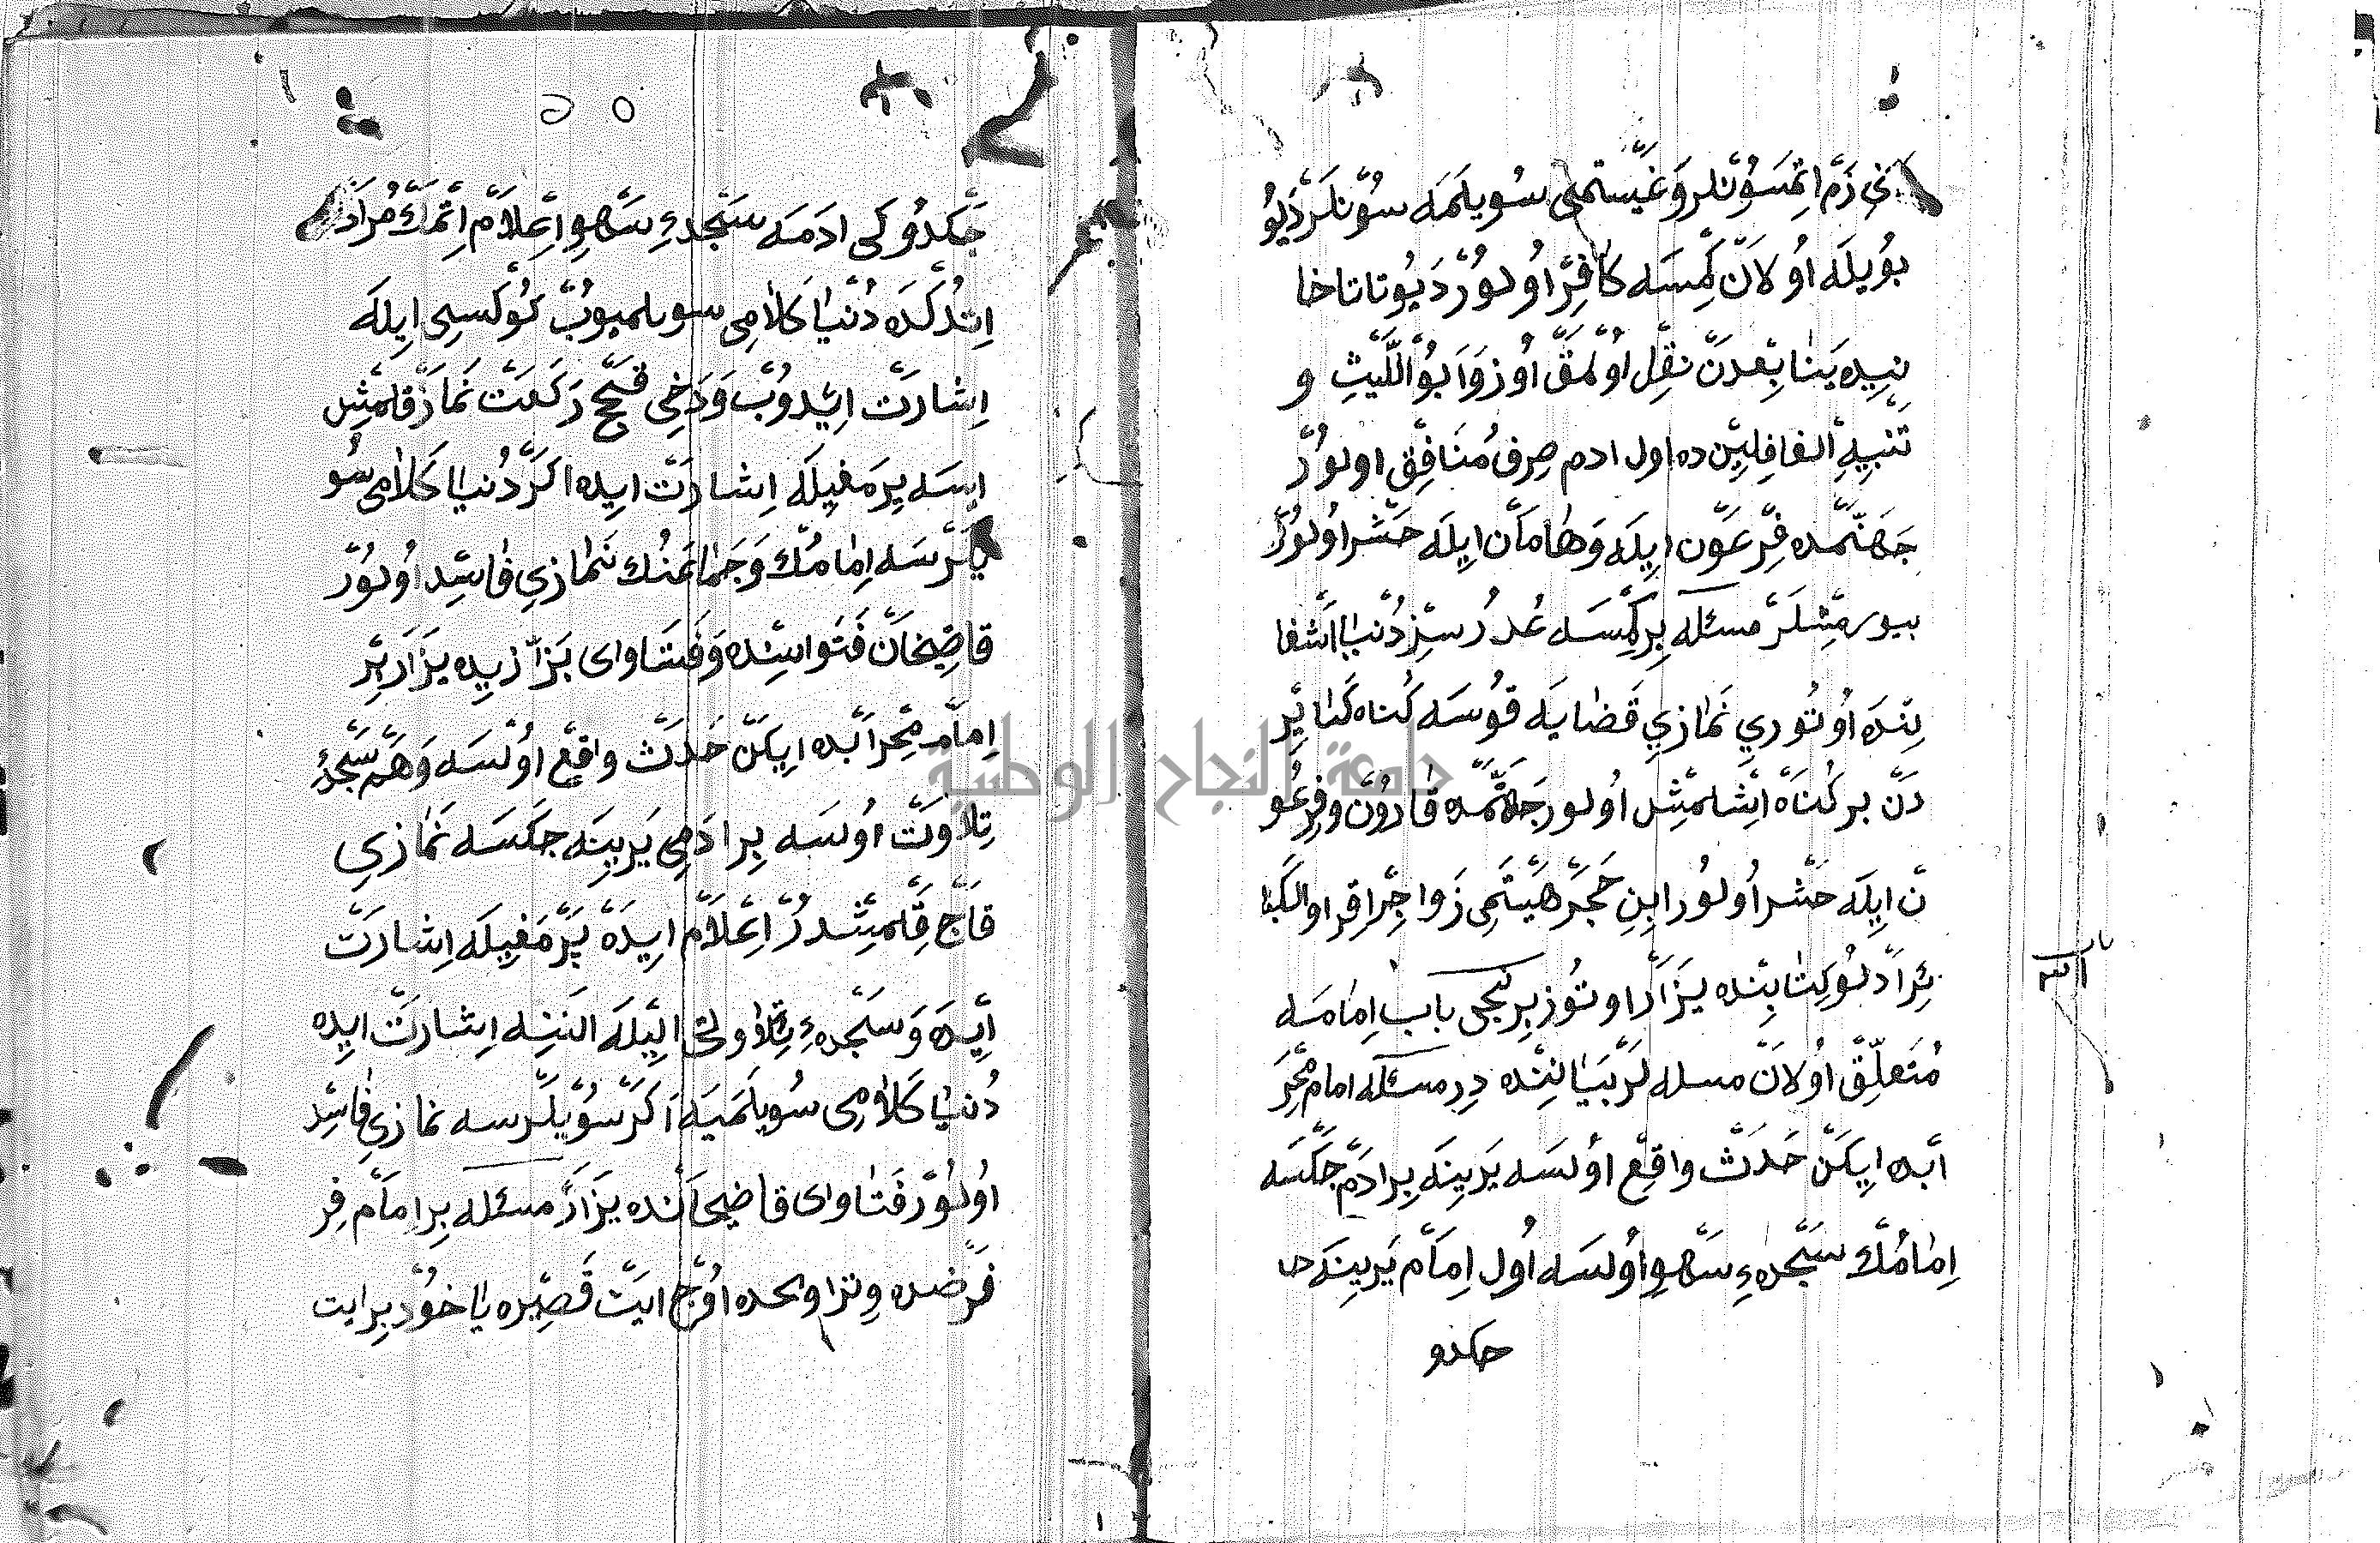 نى ذم اتمسونلر و غيبتمنى سويلمه سونلر ديو
بويله اولان كمسه كافر اولور ديو تاتاخا
نيده ينابعدن نقل اولمق اوزوا بو الليث و
تنبيه الغافلين ده اول ادم صرف منافق اولور
جهنمده فرعون ايله وهامان ايله حشر اولور
بيورمشلر مسئله بر كمسه عذرسز دنيا اشغا
لنده اوتوري نمازي قضايه قوسه كناه كباير
دن بر كناه اشلمش اولور جهنمده قارون و فرعو
ن ايله حشر اولور ابن حجر هيتمى زواجر اقراو الكبا
ئر ادلو كتابنده يزار اوتوز برنجى باب امامه
متعلق اولان مسئله لر بياننده در مسئله امام محر
ابده ايكن حدث واقع اولسه يرينه بر ادم جكسه
امامك سجدهء سهو اولسه اول امام يرينه
جكدو
باب الله
٥٥
جكدوكى ادمه سجدهء سهو اعلام اتمك مراد
اتدكده دنيا كلامى سويلميوب كوكسى ايله
اشارت ايدوب و دخى قج ركعت نماز قلمش
ايسه پرمغيله اشارت ايده اكر دنيا كلامى سو
يلرسه امامك و جماعتك نمازي فاسد اولور
قاضيخان فتواسنده و فتاواى بزازيده يزار بر
امام محرابده ايكن حدث واقع اولسه و هم سجدهء
تلاوت اولسه بر ادمى يرينه جكسه نمازي
قاج قلمشدر اعلام ايده پرمغيله اشارت
ايده و سجدهء تلاوتى ايله النه اشارت ايده
دنيا كلامى سويلميه اكر سويلرسه نمازي فاسد
اولور فتاواى قاضيخانده يزار مسئله بر امام فر
فرضده و تراويحده اوج ايت قصيره ياخود بر ايت